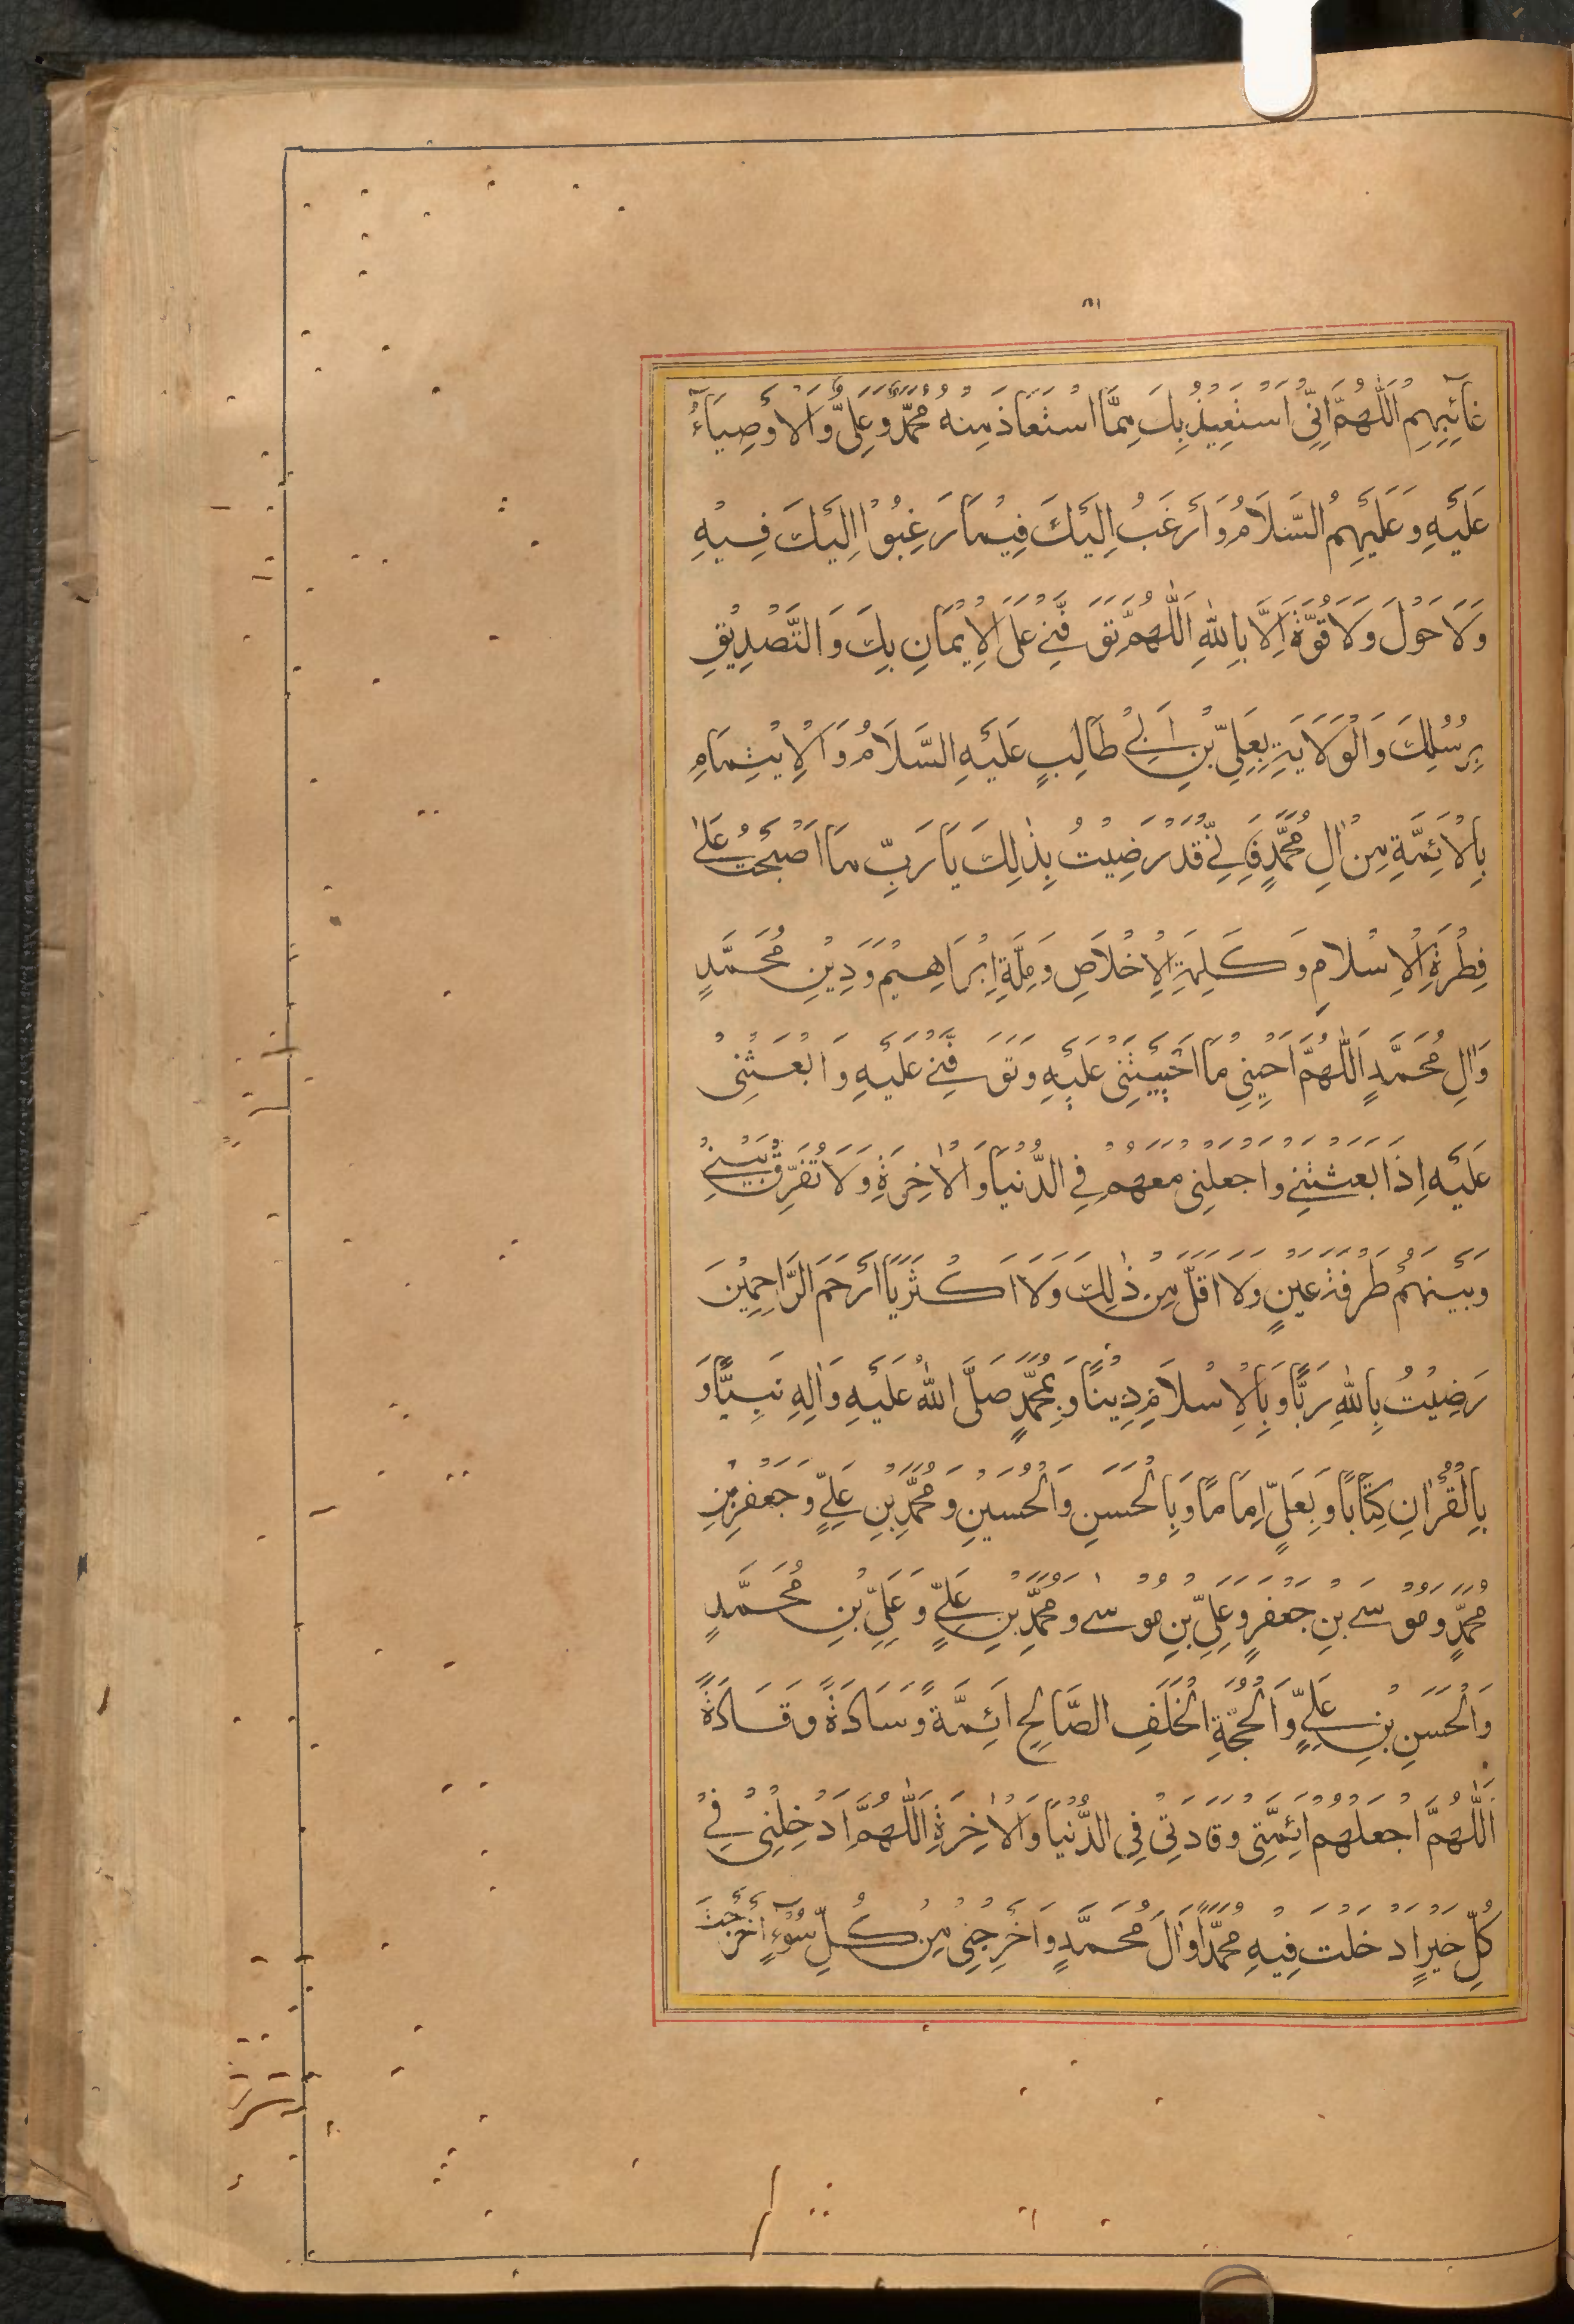 غَآئِبِهِمْ اَللّٰهُمَّ اِنِّیْ اَسْتَعِیْذُ بِكَ مِمَّا اسْتَعَاذَ مِنْهُ مُحَمَّدٌ وَّعَلِیٌّ وَّالْاَوْصِیَآءُ
عَلَیْهِ وَعَلَیْهِمُ السَّلَامُ وَاَرْغَبُ اِلَیْكَ فِیْمَا رَغِبُوْا اِلَیْكَ فِیْهِ
وَلَا حَوْلَ وَلَا قُوَّةَ اِلَّا بِاللّٰهِ اَللّٰهُمَّ تَوَفَّنِیْ عَلَی الْاِیْمَانِ بِكَ وَالتَّصْدِیْقِ
بِرُسُلِكَ وَالْوَلَایَةِ بِعَلِیِّ بْنِ اَبِیْ طَالِبٍ عَلَیْهِ السَّلَامُ وَالْاِیْتِمَامِ
بِالْاَئِمَّةِ مِنْ اٰلِ مُحَمَّدٍ فَاِنِّیْ قَدْ رَضِیْتُ بِذٰلِكَ یَا رَبِّ مَا اَصْبَحْتُ عَلٰی
فِطْرَةِ الْاِسْلَامِ وَكَلِمَةِ الْاِخْلَاصِ وَمِلَّةِ اِبْرَاهِیْمَ وَدِیْنِ مُحَمَّدٍ
وَاٰلِ مُحَمَّدٍ اَللّٰهُمَّ اَحْیِنِیْ مَا اَحْیَیْتَنِیْ عَلَیْهِ وَتَوَفَّنِیْ عَلَیْهِ وَابْعَثْنِیْ
عَلَیْهِ اِذَا بَعَثْتَنِیْ وَاجْعَلْنِیْ مَعَهُمْ فِی الدُّنْیَا وَالْاٰخِرَةِ وَلَا تُفَرِّقْ بَیْنِیْ
وَبَیْنَهُمْ طَرْفَةَ عَیْنٍ وَلَا اَقَلَّ مِنْ ذٰلِكَ وَلَا اَكْثَرَ یَا اَرْحَمَ الرَّاحِمِیْنَ
رَضِیْتُ بِاللّٰهِ رَبًّا وَبِالْاِسْلَامِ دِیْنًا وَبِمُحَمَّدٍ صَلَّی اللّٰهُ عَلَیْهِ وَاٰلِهِ نَبِیًّا وَ
بِالْقُرْاٰنِ كِتَابًا وَبِعَلِیٍّ اِمَامًا وَبِالْحَسَنِ وَالْحُسَیْنِ وَمُحَمَّدِ بْنِ عَلِیٍّ وَجَعْفَرِ بْنِ
مُحَمَّدٍ وَمُوْسَی بْنِ جَعْفَرٍ وَعَلِیِّ بْنِ مُوْسٰی وَمُحَمَّدِ بْنِ عَلِیٍّ وَعَلِیِّ بْنِ مُحَمَّدٍ
وَالْحَسَنِ بْنِ عَلِیٍّ وَّالْحُجَّةِ الْخَلَفِ الصَّالِحِ اَئِمَّةً وَسَادَةً وَقَادَةً
اَللّٰهُمَّ اجْعَلْهُمْ اَئِمَّتِیْ وَقَادَتِیْ فِی الدُّنْیَا وَالْاٰخِرَةِ اَللّٰهُمَّ اَدْخِلْنِیْ فِیْ
كُلِّ خَیْرٍ اَدْخَلْتَ فِیْهِ مُحَمَّدًا وَاٰلَ مُحَمَّدٍ وَاَخْرِجْنِیْ مِنْ كُلِّ سُوْٓءٍ اَخْرَجْتَ